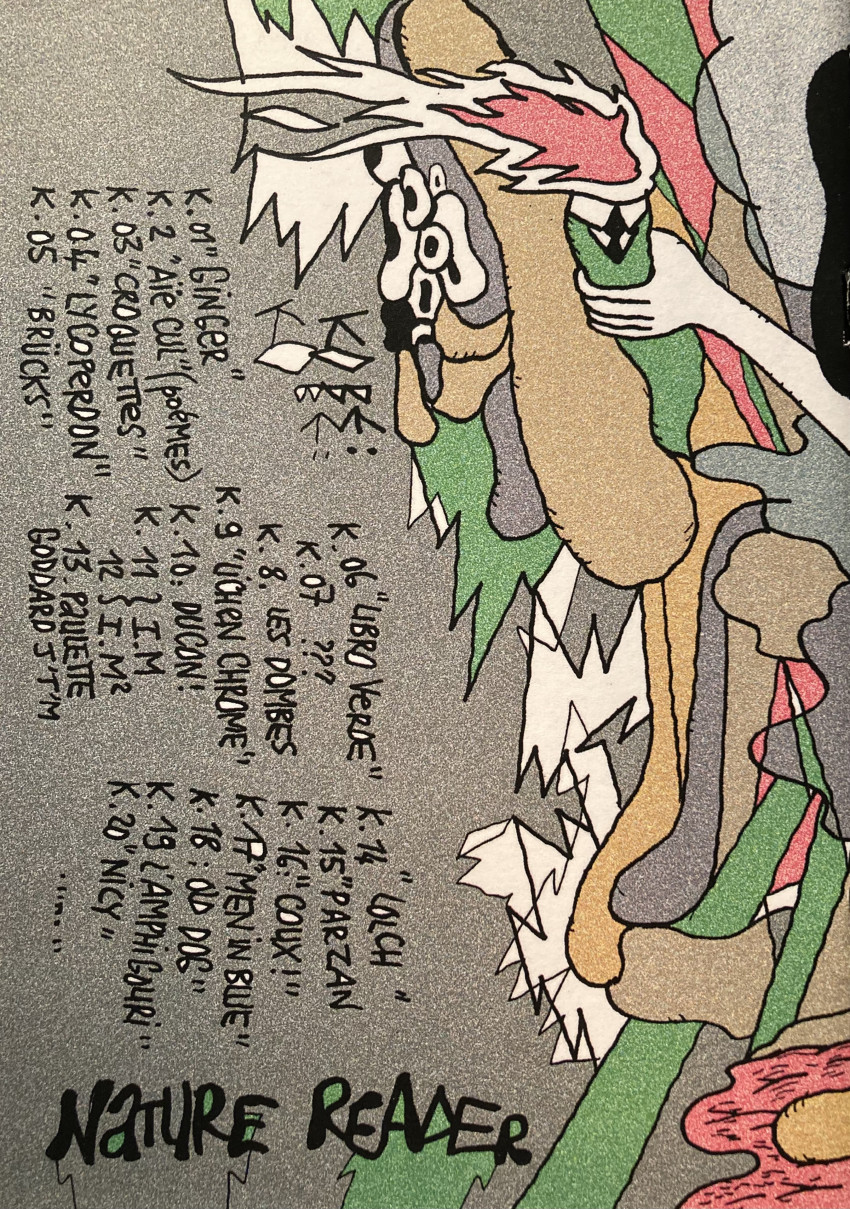 K.01 "GINGER"
K.2 "Aïe CUL" (poèmes)
K.03 "CROQUETTES"
K.04 "LYCOPERDON"
K.05 "BRÜCKS"
K.06 "LIBRO VERDE"
K.07 ???
K.8. LES DOMBES
K.9 "LICHEN CHROME"
K.10: DUCON!
K.11 } I.M
12 } I.M²
K.13. PAULETTE
GODDARD J'T'M
K.14 "LOLCH"
K.15 "PARZAN
K.16: "COUX!"
K.17 "MEN IN BLUE"
K.18: OLD DOG"
K.19 L'AMPHIGOURI"
K.20 "NICY"
"...."
NATURE READER